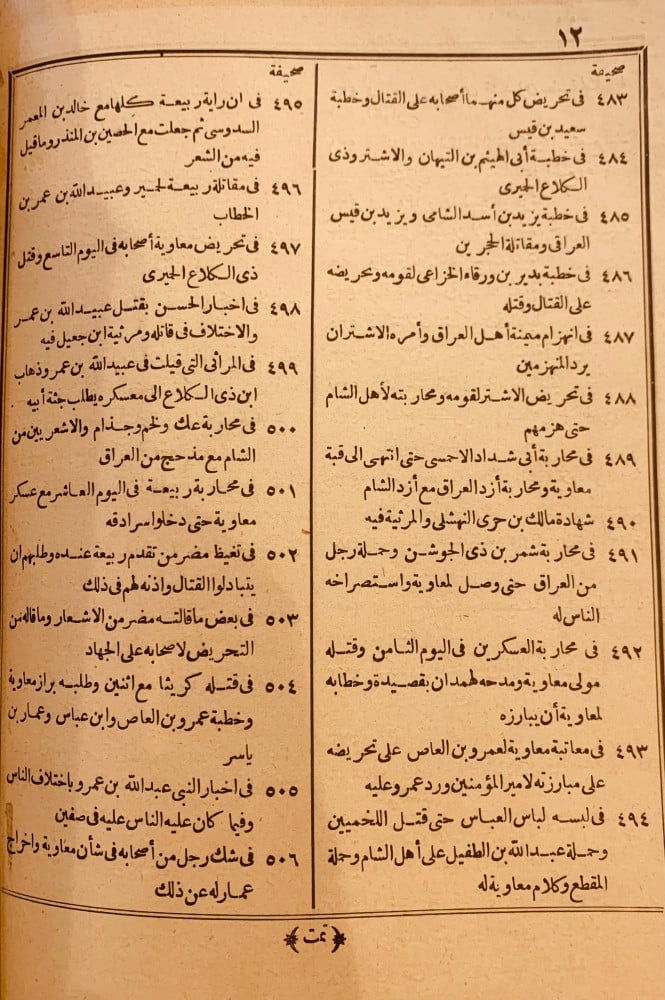 ١٢
صحيفة
٤٨٣ فى تحريض كل منهما أصحابه على القتال وخطبة
سعيد بن قيس
٤٨٤ فى خطبة أبى الهيثم بن التيهان والاشتر وذى
الكلاع الحيرى
٤٨٥ فى خطبة يزيد بن أسد الشامى ويزيد بن قيس
العراقى ومقاتلة الحجرين
٤٨٦ فى خطبة بدير بن ورقاء الخزاعى لقومه وتحريضه
على القتال وقتله
٤٨٧ فى انهزام ميمنة أهل العراق وأمره الاشتران
يرد المنهزمين
٤٨٨ فى تحريض الاشتر لقومه ومحاربته لأهل الشام
حتى هزمهم
٤٨٩ فى محاربة أبى شداد الاحمسى حتى انتهى الى قبة
معاوية ومحاربة أزد العراق مع أزد الشام
٤٩٠ شهادة مالك بن حرى النهشلى والمرثية فيه
٤٩١ فى محاربة شمر بن ذى الجوشن وحملة رجل
من العراق حتى وصل لمعاوية واستصراخه
الناس له
٤٩٢ فى محاربة العسكرين فى اليوم الثامن وقتله
مولى معاوية ومدحه لهمدان بقصيدة وخطابه
لمعاوية أن يبارزه
٤٩٣ فى معاتبة معاوية لعمرو بن العاص على تحريضه
على مبارزته لامير المؤمنين ورد عمرو عليه
٤٩٤ فى لبسه لباس العباس حتى قتل اللخميين
وحملة عبد الله بن الطفيل على أهل الشام وحملة
المقطع وكلام معاوية له
صحيفة
٤٩٥ فى ان راية ربيعة كلها مع خالد بن المعمر
السدوسى ثم جعلت مع الحصين بن المنذر وما قيل
فيه من الشعر
٤٩٦ فى مقاتلة ربيعة لحير وعبيد الله بن عمر بن
الخطاب
٤٩٧ فى تحريض معاوية أصحابه فى اليوم التاسع وقتل
ذى الكلاع الحيرى
٤٩٨ فى اخبار الحسن بقتل عبيد الله بن عمر
والاختلاف فى قاتله ومرثية ابن جعيل فيه
٤٩٩ فى المراثى التى قيلت فى عبيد الله بن عمر وذهاب
ابن ذى الكلاع الى معسكره يطلب جثة أبيه
٥٠٠ فى محاربة عك ولخم وجذام والاشعريين من
الشام مع مذحج من العراق
٥٠١ فى محاربة ربيعة فى اليوم العاشر مع عسكر
معاوية حتى دخلوا سرادقه
٥٠٢ فى تغيظ مضر من تقدم ربيعة عنده وطلبهم ان
يتبادلوا القتال واذنه لهم فى ذلك
٥٠٣ فى بعض ما قالته مضر من الاشعار وما قاله من
التحريض لاصحابه على الجهاد
٥٠٤ فى قتله كريثا مع اثنين وطلبه براز معاوية
وخطبة عمرو بن العاص وابن عباس وعمار بن
ياسر
٥٠٥ فى اخبار النبى عبد الله بن عمرو باختلاف الناس
وفيما كان عليه الناس عليه فى صفين
٥٠٦ فى شك رجل من أصحابه فى شأن معاوية واخراج
عمار له عن ذلك
تمت